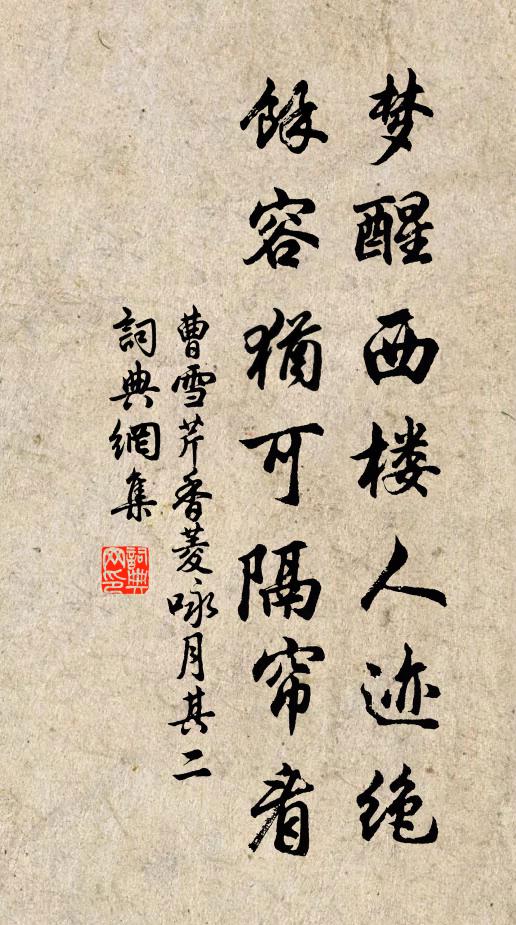 梦醒西楼人迹绝
馀容犹可隔帘看
曹雪芹香菱咏月其二
詞典網集
詞典网印